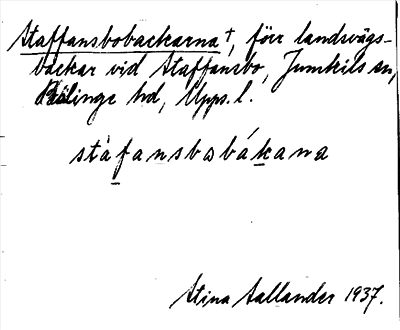 Staffansbobackarna †, förr landsvägs-
backar vid Staffansbo, Jumkils sn,
Bälinge hd, Upps. l.
stàfansbobákana
Stina Sallander 1937.